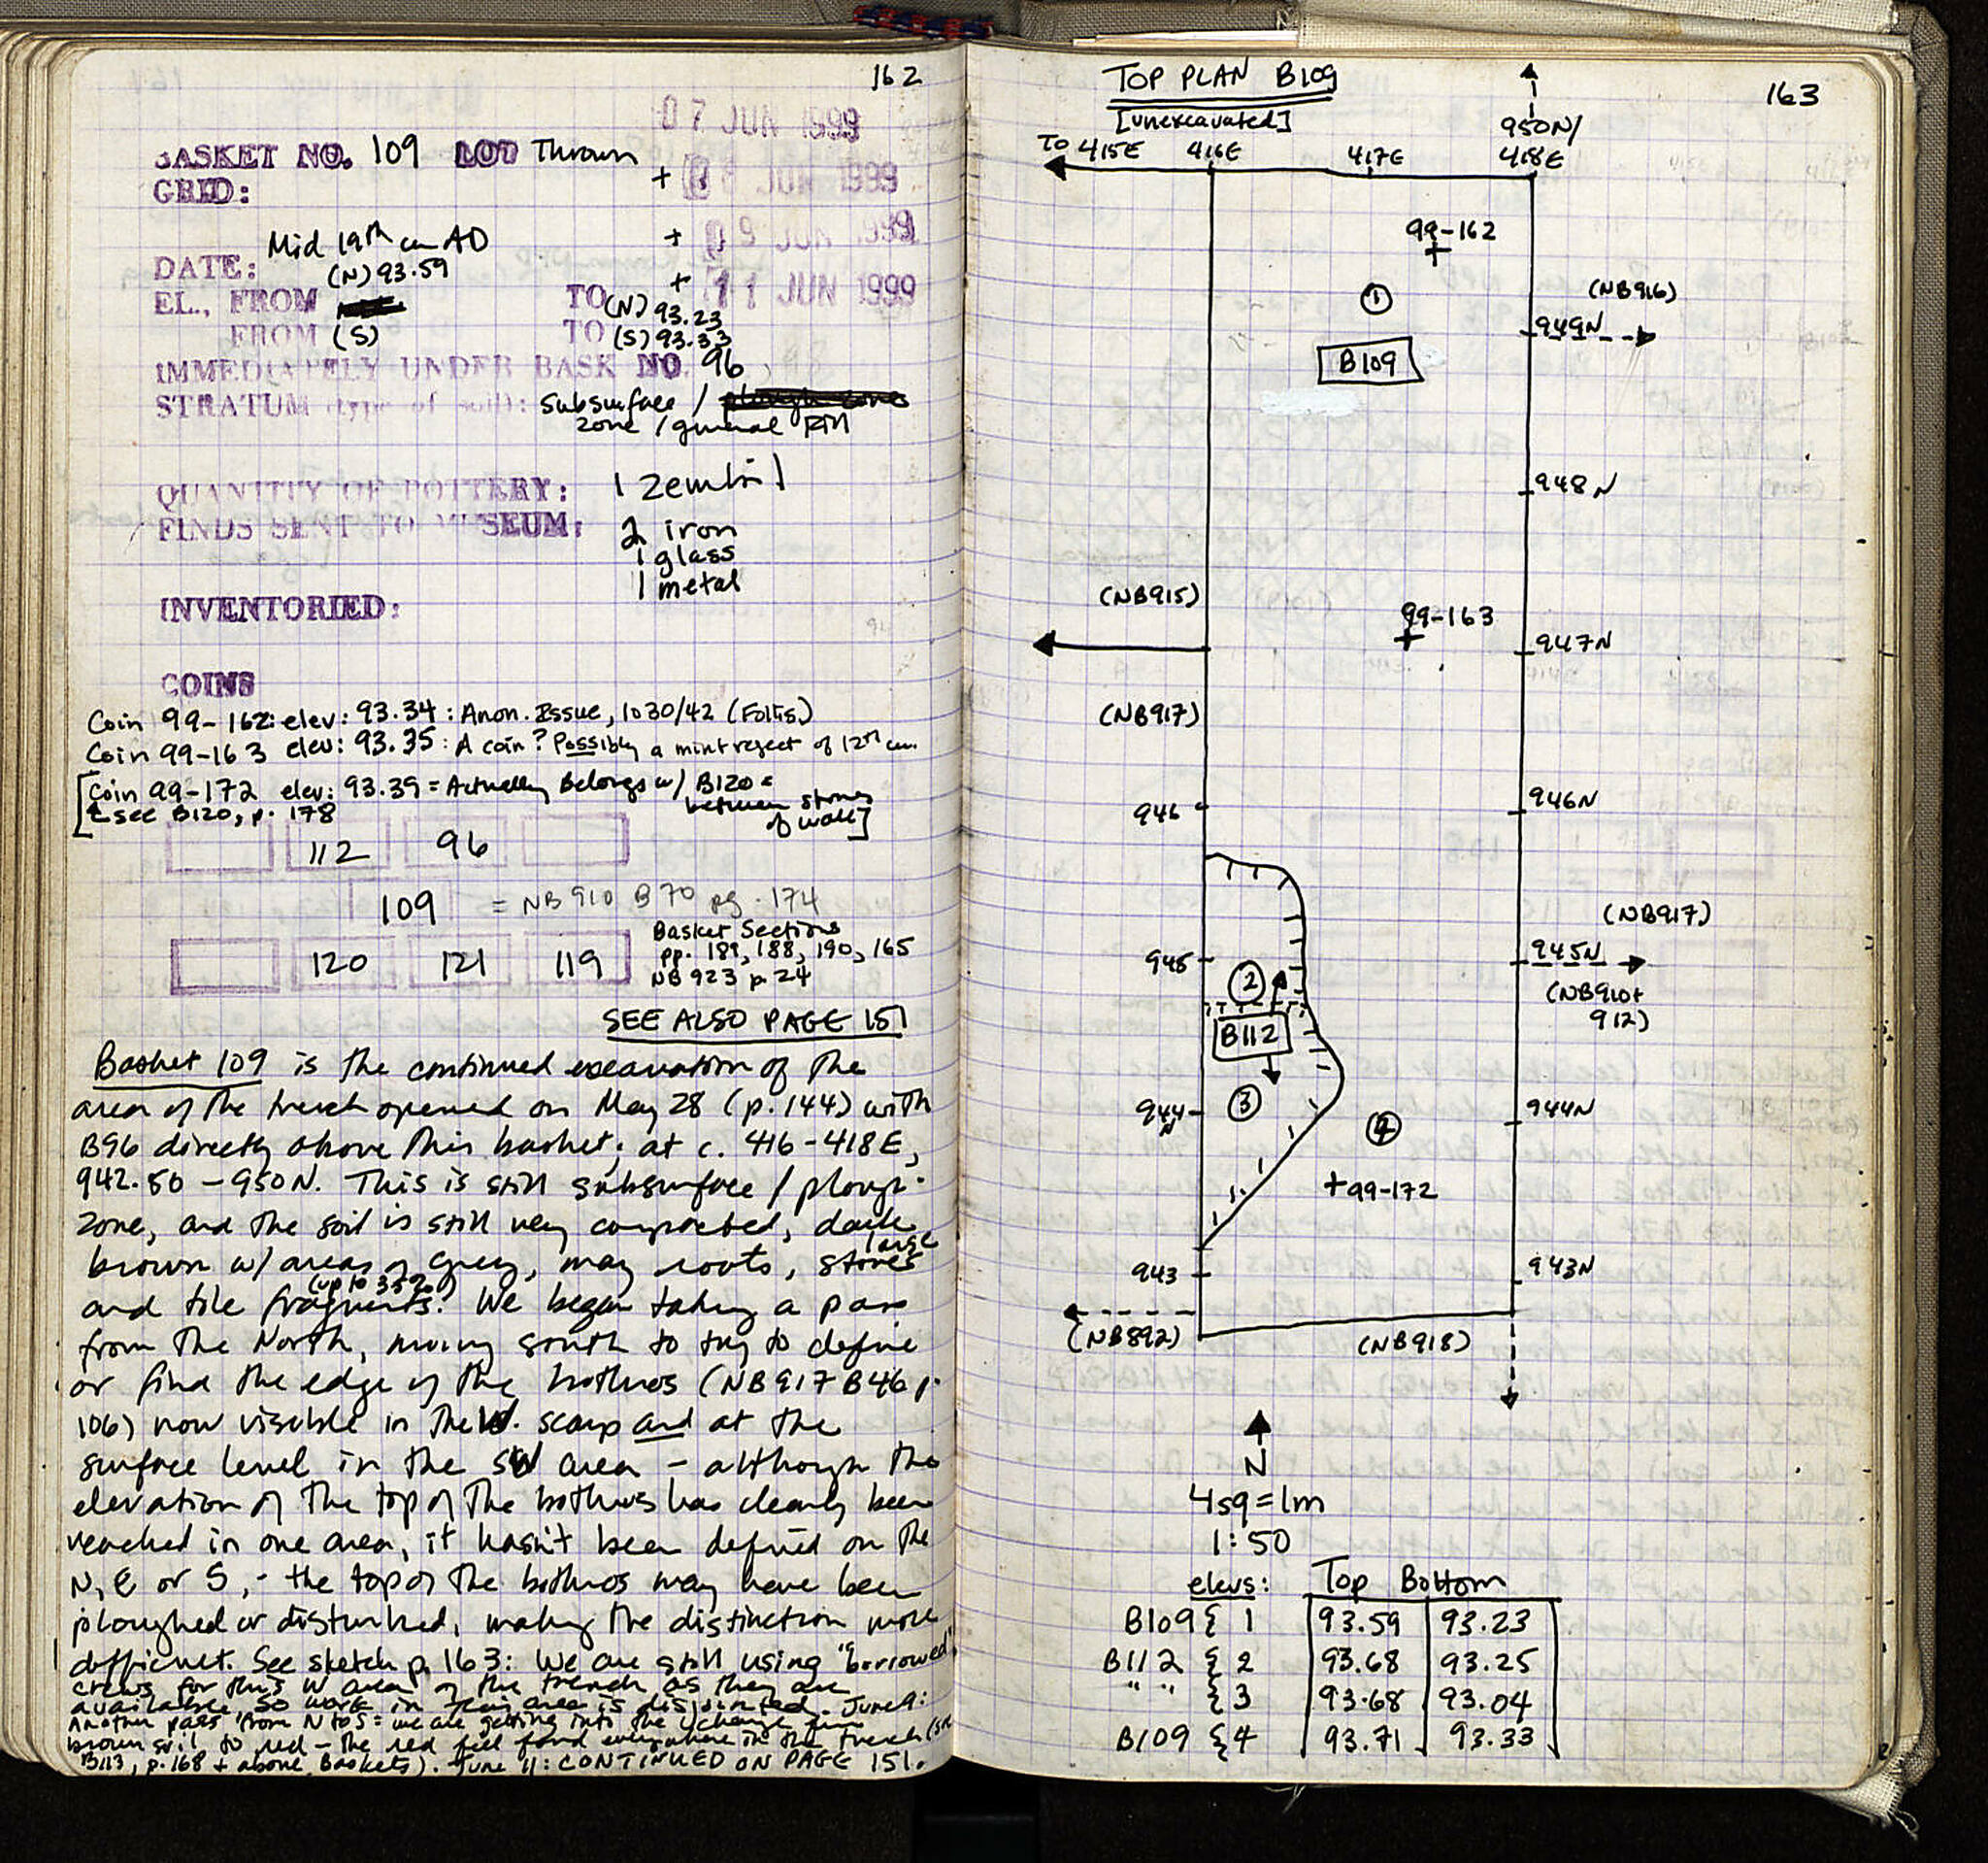 162
07 JUN 1999
BASKET NO. 109 LOT Thrown
+ 08 JUN 1999
GRID:
+ 09 JUN 1999
Mid 19th cen AD
DATE:
(N) 93.59
+ 11 JUN 1999
EL., FROM TO (N) 93.23
FROM (S) TO (S) 93.33
IMMEDIATELY UNDER BASK NO. 96
STRATUM (type of soil): subsurface /
zone / general fill
QUANTITY OF POTTERY: 1 zembil
FINDS SENT TO MUSEUM: 2 iron
1 glass
1 metal
INVENTORIED:
COINS
Coin 99-162: elev: 93.34: Anon. Issue, 1030/42 (Follis)
Coin 99-163 elev: 93.35: A coin? Possibly a mint reject of 12th cen.
[Coin 99-172 elev: 93.39 = Actually Belongs w/ B120 =
between stones
of wall]
see B120, p. 178
112 96
109 = NB 910 B 70 pg. 174
120 121 119
Basket Sections
pp. 189, 188, 190, 165
NB 923 p. 24
SEE ALSO PAGE 151
Basket 109 is the continued excavation of the
area of the trench opened on May 28 (p. 144) with
B96 directly above this basket; at c. 416-418E,
942.80 - 950N. This is still subsurface / plough-
zone, and the soil is still very compacted, dark
brown w/ areas of grey, many roots, large stones
and tile fragments (up to 35%). We began taking a pass
from the North, moving south to try to define
or find the edge of the bothros (NB917 B46 p.
106) now visible in the W. scarp and at the
surface level in the SW area - although the
elevation of the top of the bothros has clearly been
reached in one area, it hasn't been defined on the
N, E or S, - the top of the bothros may have been
ploughed or disturbed, making the distinction more
difficult. See sketch p. 163: We are still using "borrowed"
crews for this W area of the trench as they are
available so work in this area is disjointed. June 9:
Another pass from N to S = we are getting into the change from
brown soil to red - the red fill found everywhere in the trench (see
B113, p. 168 + above baskets). June 11: CONTINUED ON PAGE 151.
163
TOP PLAN B109
[unexcavated]
950N/
To 415E 416E 417E 418E
99-162
1
(NB916)
949N
B109
948N
(NB915)
99-163
947N
(NB917)
946 946N
(NB917)
945 945N
2
(NB910+
912)
B112
944N 3 944N
4
99-172
943 943N
(NB892) (NB918)
N
4sq=1m
1:50
elevs: Top Bottom
B109 { 1 93.59 93.23
B112 { 2 93.68 93.25
" " { 3 93.68 93.04
B109 { 4 93.71 93.33